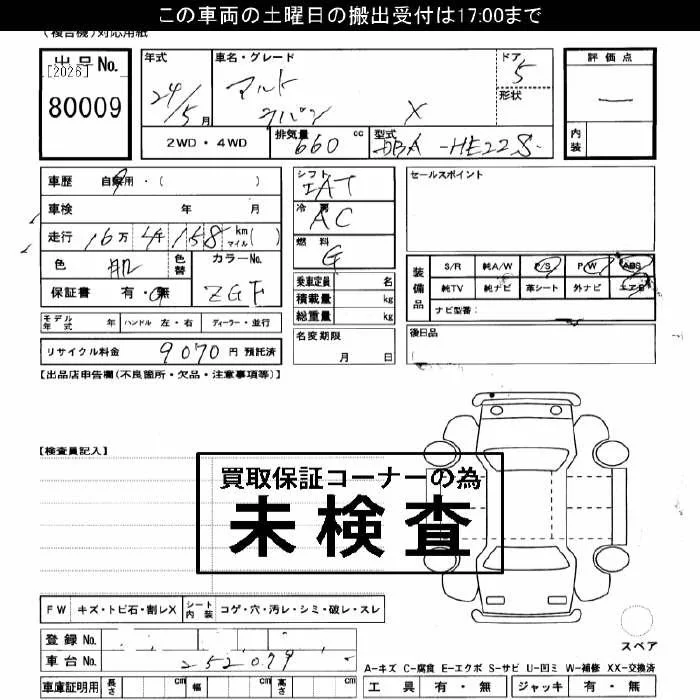 この車両の土曜日の搬出受付は17:00まで
(複合機)対応用紙
出品No.
[2026]
80009
年式
24/5月
車名・グレード
アルト
ラパン X
ドア
5
形状
2WD・4WD
排気量 660 cc
型式 DBA-HE22S
評価点
内装
車歴 自家用・( )
車検 年 月
走行 16万4千158 km マイル ( )
色 肌
色替
カラーNo.
ZGF
保証書 有・無
モデル年式 年 ハンドル 左・右 ディーラー・並行
リサイクル料金 9070 円 預託済
シフト
IAT
冷房
AC
燃料
G
乗車定員 名
積載量 kg
総重量 kg
名変期限
月 日
セールスポイント
装備品
S/R 純A/W P/S P/W ABS
純TV 純ナビ 革シート 外ナビ エアB
ナビ型番:
後日品
【出品店申告欄(不良箇所・欠品・注意事項等)】
【検査員記入】
買取保証コーナーの為
未検査
FW キズ・トビ石・割レX
シート内装 コゲ・穴・汚レ・シミ・破レ・スレ
登録No.
車台No. 252079
車庫証明用 長さ cm 幅 cm 高さ cm
スペア
A-キズ C-腐食 E-エクボ S-サビ U-凹ミ W-補修 XX-交換済
工具 有・無 ジャッキ 有・無